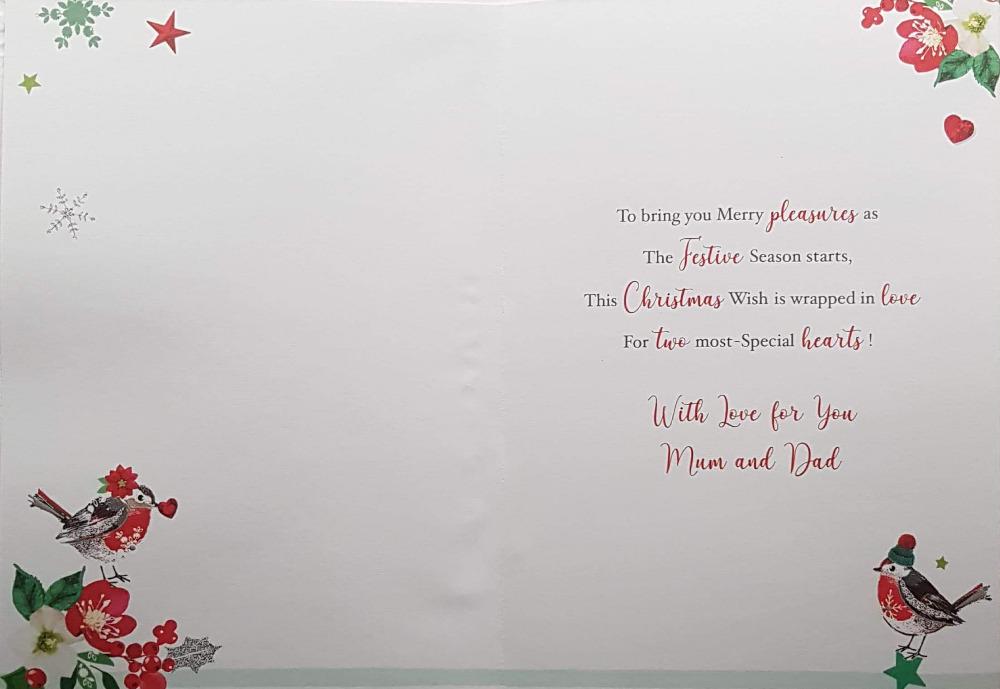 To bring you Merry pleasures as
The Festive Season starts,
This Christmas Wish is wrapped in love
For two most-Special hearts !
With Love for You
Mum and Dad